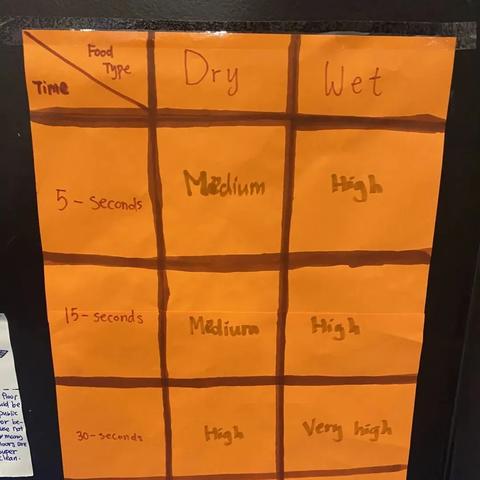 Food
Type
Time
Dry
Wet
5 - Seconds
Medium
High
15 - seconds
Medium
High
30 - seconds
High
Very high
floor
be
public
or be-
use not
many
are
super
clean.